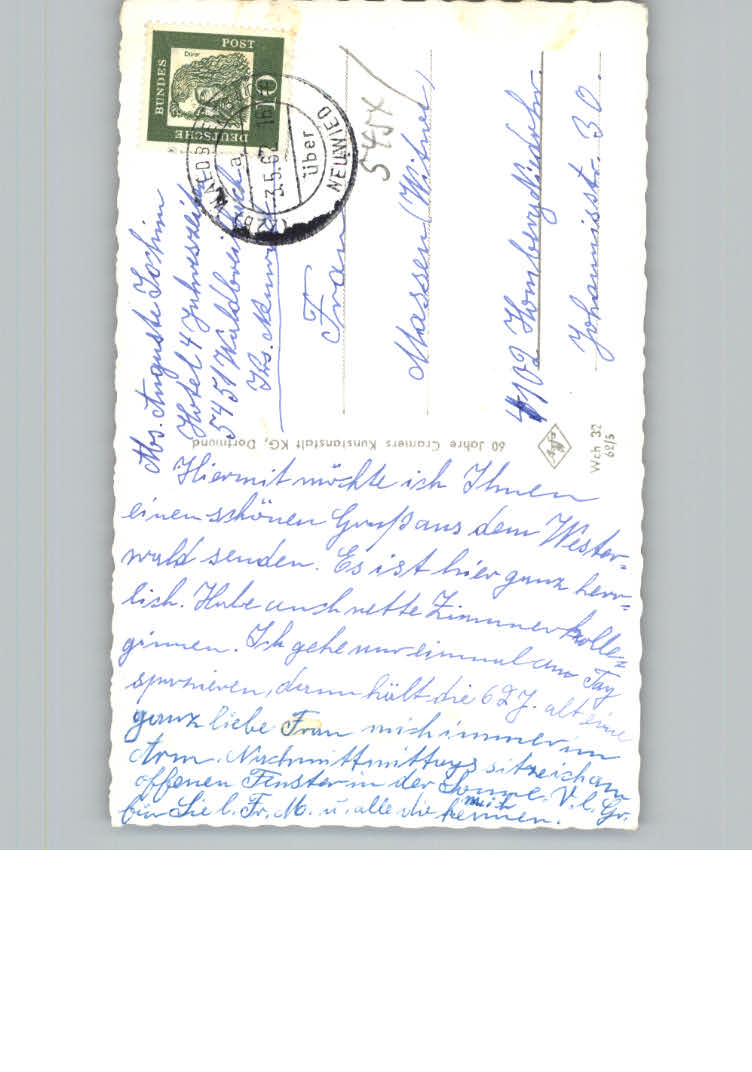 DEUTSCHE
BUNDES
POST
Dürer
10
3.5.62
über
NEUWIED
545X
Abs. Auguste Jochim
Hotel 4 Jahreszeiten
5451 Waldbreitbach
Krs. Neuwied
Frau
Massen (Witwe)
4102 Homberg Niederrh.
Johannisstr. 30.
60 Jahre Cramers Kunstanstalt KG, Dortmund
Wch 32
62/5
Hiermit möchte ich Ihnen
einen schönen Gruß aus dem Wester-
wald senden. Es ist hier ganz herr-
lich. Habe auch nette Zimmerkolle-
ginnen. Ich gehe nur einmal am Tag
spazieren, dann hält die 62 J. alt eine
ganz liebe Frau mich immer im
Arm. Nachmittmittags sitze ich am
offenen Fenster in der Sonne. V. l. Gr.
für Sie l. Fr. M. u. alle die mich kennen.